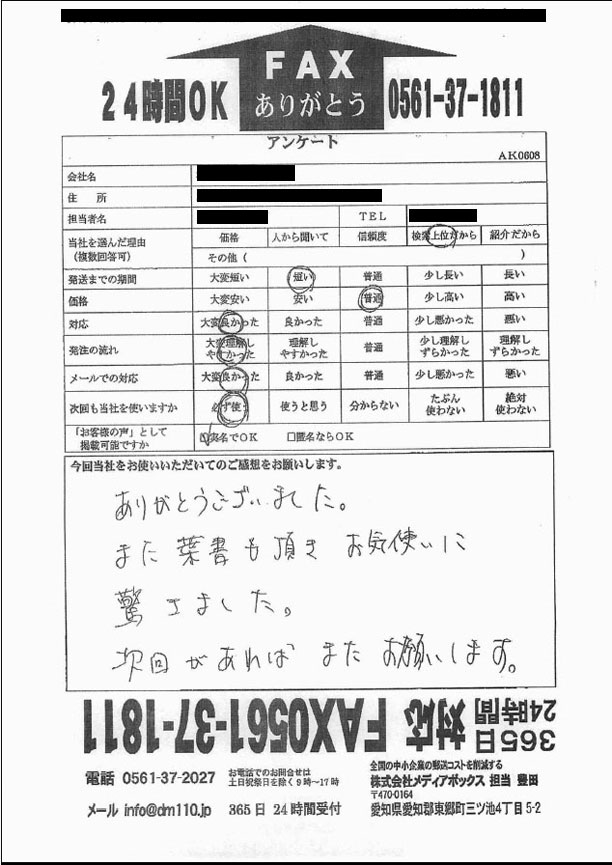 FAX
ありがとう
24時間OK
0561-37-1811
アンケート
AK0608
会社名
住 所
担当者名 TEL
当社を選んだ理由
(複数回答可)
価格 人から聞いて 信頼度 検索上位だから 紹介だから
その他 ( )
発送までの期間 大変短い 短い 普通 少し長い 長い
価格 大変安い 安い 普通 少し高い 高い
対応 大変良かった 良かった 普通 少し悪かった 悪い
発注の流れ 大変理解しやすかった 理解しやすかった 普通 少し理解しずらかった 理解しずらかった
メールでの対応 大変良かった 良かった 普通 少し悪かった 悪い
次回も当社を使いますか 必ず使う 使うと思う 分からない たぶん使わない 絶対使わない
「お客様の声」として
掲載可能ですか
☑実名でOK □匿名ならOK
今回当社をお使いいただいてのご感想をお願いします。
ありがとうございました。
また葉書も頂き お気使いに
驚きました。
次回があれば またお願いします。
365日
24時間
対応 FAX0561-37-1811
電話 0561-37-2027
お電話でのお問合せは
土日祝祭日を除く9時~17時
メール info@dm110.jp 365日24時間受付
全国の中小企業の郵送コストを削減する
株式会社メディアボックス 担当 豊田
〒470-0164
愛知県愛知郡東郷町三ツ池4丁目5-2